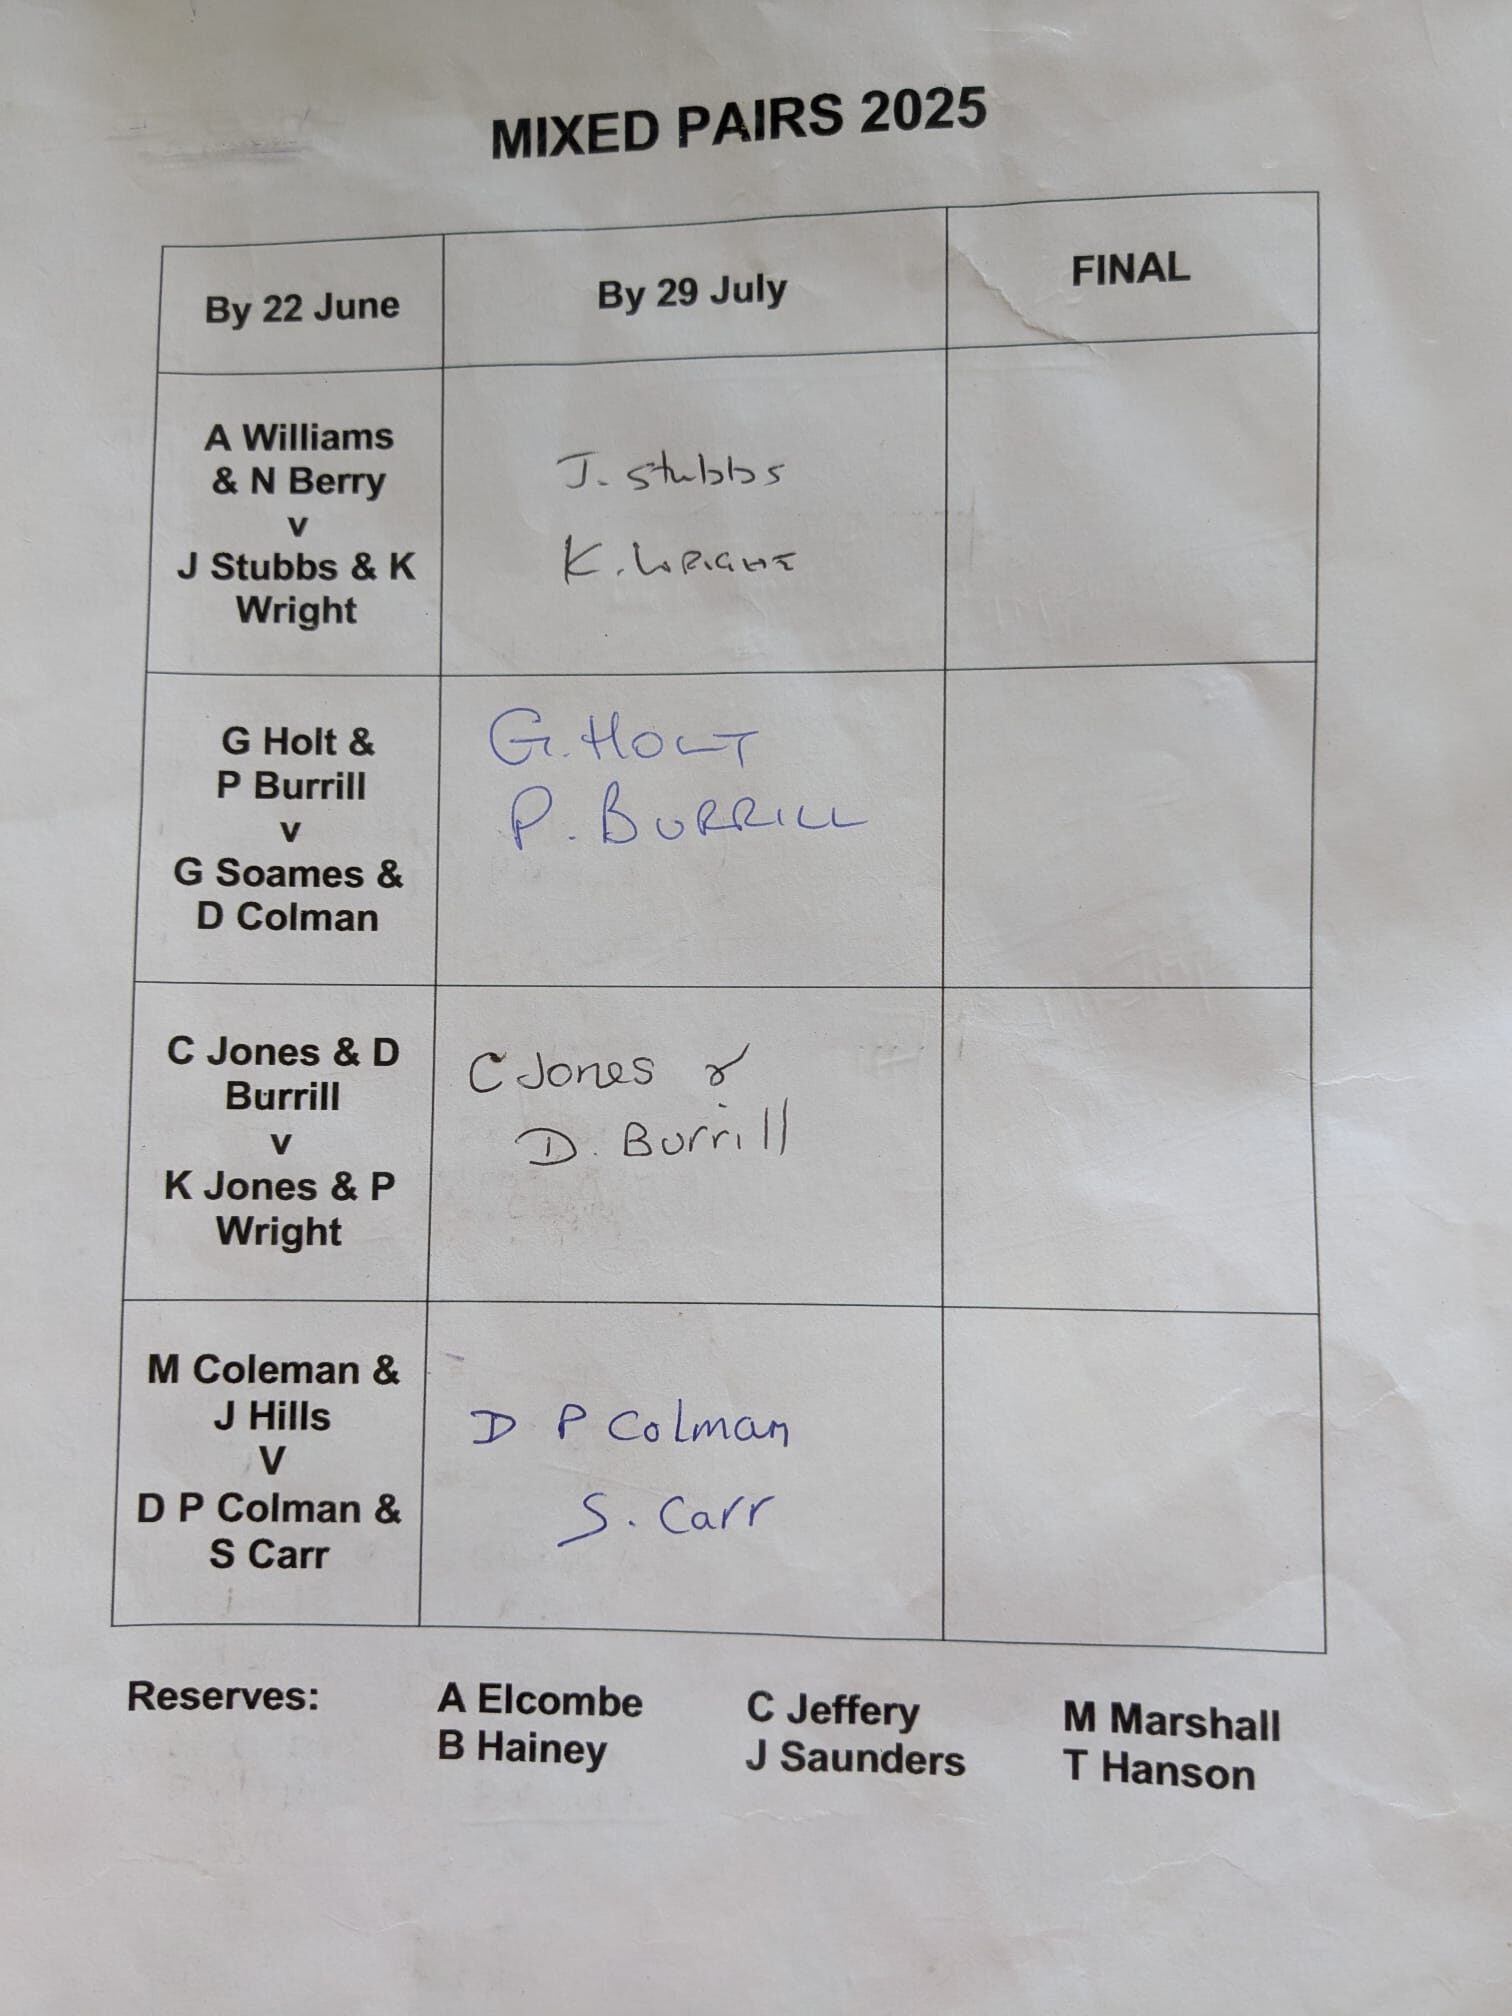 MIXED PAIRS 2025
By 22 June
By 29 July
FINAL
A Williams
& N Berry
v
J Stubbs & K
Wright
J. Stubbs
K. WRIGHT
G Holt &
P Burrill
v
G Soames &
D Colman
G. HOLT
P. BURRILL
C Jones & D
Burrill
v
K Jones & P
Wright
C Jones &
D. Burrill
M Coleman &
J Hills
V
D P Colman &
S Carr
D P Colman
S. Carr
Reserves:
A Elcombe
B Hainey
C Jeffery
J Saunders
M Marshall
T Hanson